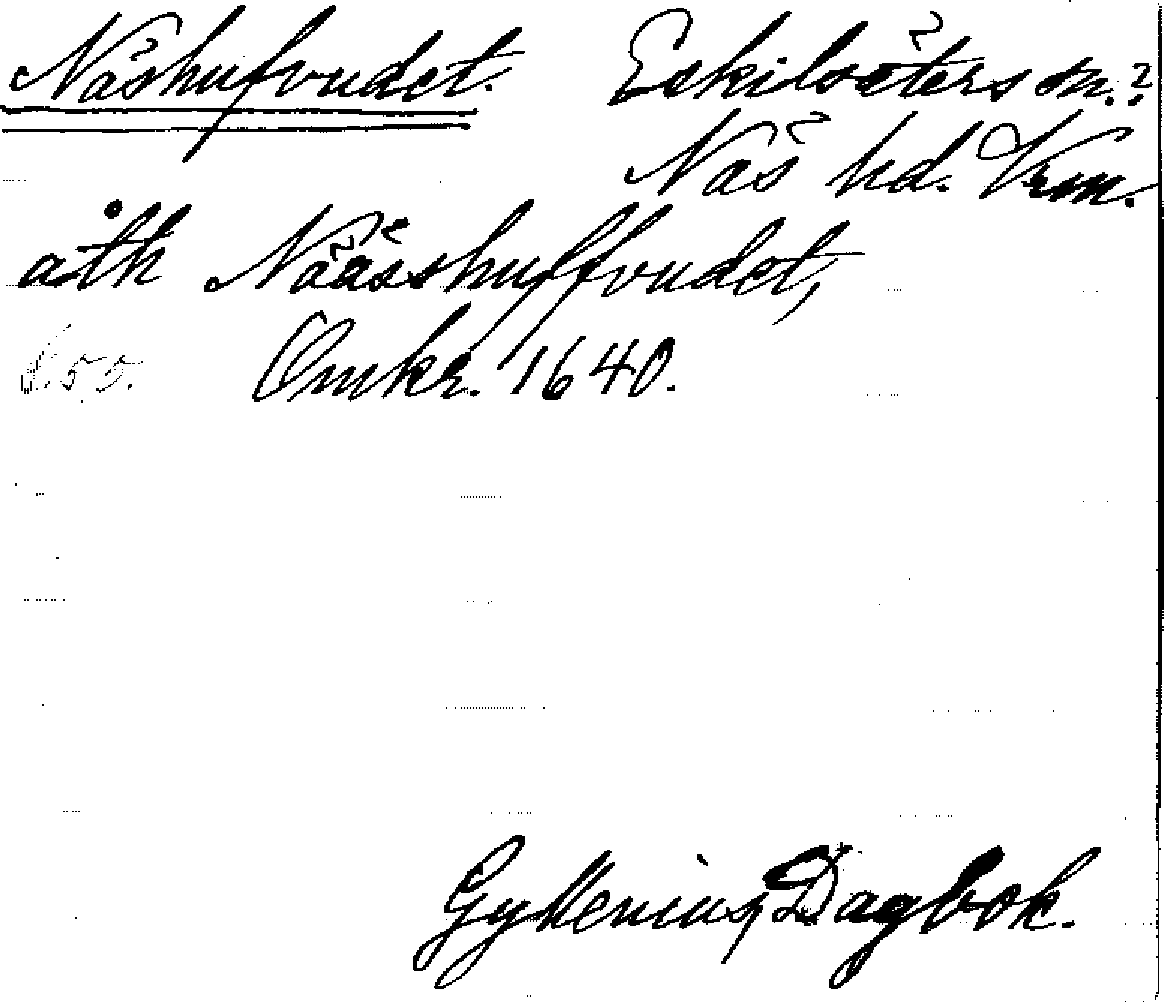 Näshufvudet. Eskilsäters sn.?
Näs hd. Vrm.
åth Näässhuffvudet,
S. 55. Omkr. 1640.
Gyllenius, Dagbok.